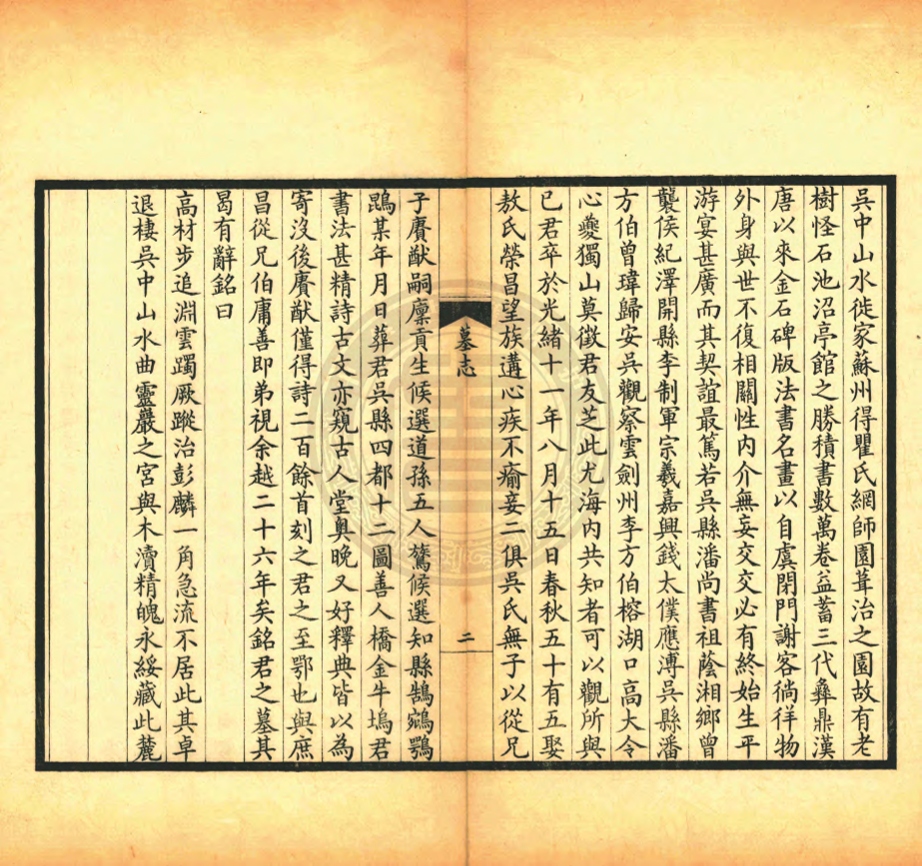 吳中山水徙家蘇州得瞿氏網師園葺治之園故有老
樹怪石池沼亭館之勝積書數萬卷益蓄三代彝鼎漢
唐以來金石碑版法書名畫以自虞閉門謝客徜徉物
外身與世不復相關性內介無妄交交必有終始生平
游宴甚廣而其契誼最篤若吳縣潘尚書祖蔭湘鄉曾
襲侯紀澤開縣李制軍宗羲嘉興錢太僕應溥吳縣潘
方伯曾瑋歸安吳觀察雲劍州李方伯榕湖口高大令
心夔獨山莫徵君友芝此尤海內共知者可以觀所與
已君卒於光緒十一年八月十五日春秋五十有五娶
敖氏榮昌望族遘心疾不瘉妾二俱吳氏無子以從兄
墓志
二
子賡猷嗣廩貢生候選道孫五人鷟候選知縣鵠鵷鶚
鵾某年月日葬君吳縣四都十二圖善人橋金牛塢君
書法甚精詩古文亦窺古人堂奧晚又好釋典皆以為
寄沒後賡猷僅得詩二百餘首刻之君之至鄂也與庶
昌從兄伯庸善即弟視余越二十六年矣銘君之墓其
曷有辭銘曰
高材步追淵雲躅厥蹤治彭麟一角急流不居此其卓
退棲吳中山水曲靈巖之宮與木瀆精魄永綏藏此麓